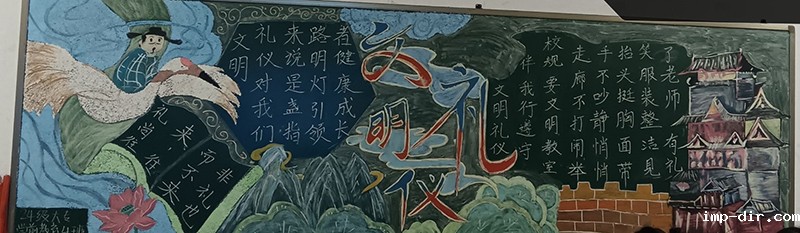 文明
礼仪对我们
来说是盏指
路明灯引领
着健康成长
礼尚往
来，而不来
非礼也
24级大专
学前教育4班
文明礼仪
文明礼仪
伴我行遵守
校规要文明教室
走廊不打闹举
手不吵静悄悄
抬头挺胸面带
笑服装整洁见
了老师有礼
imp-dir.com